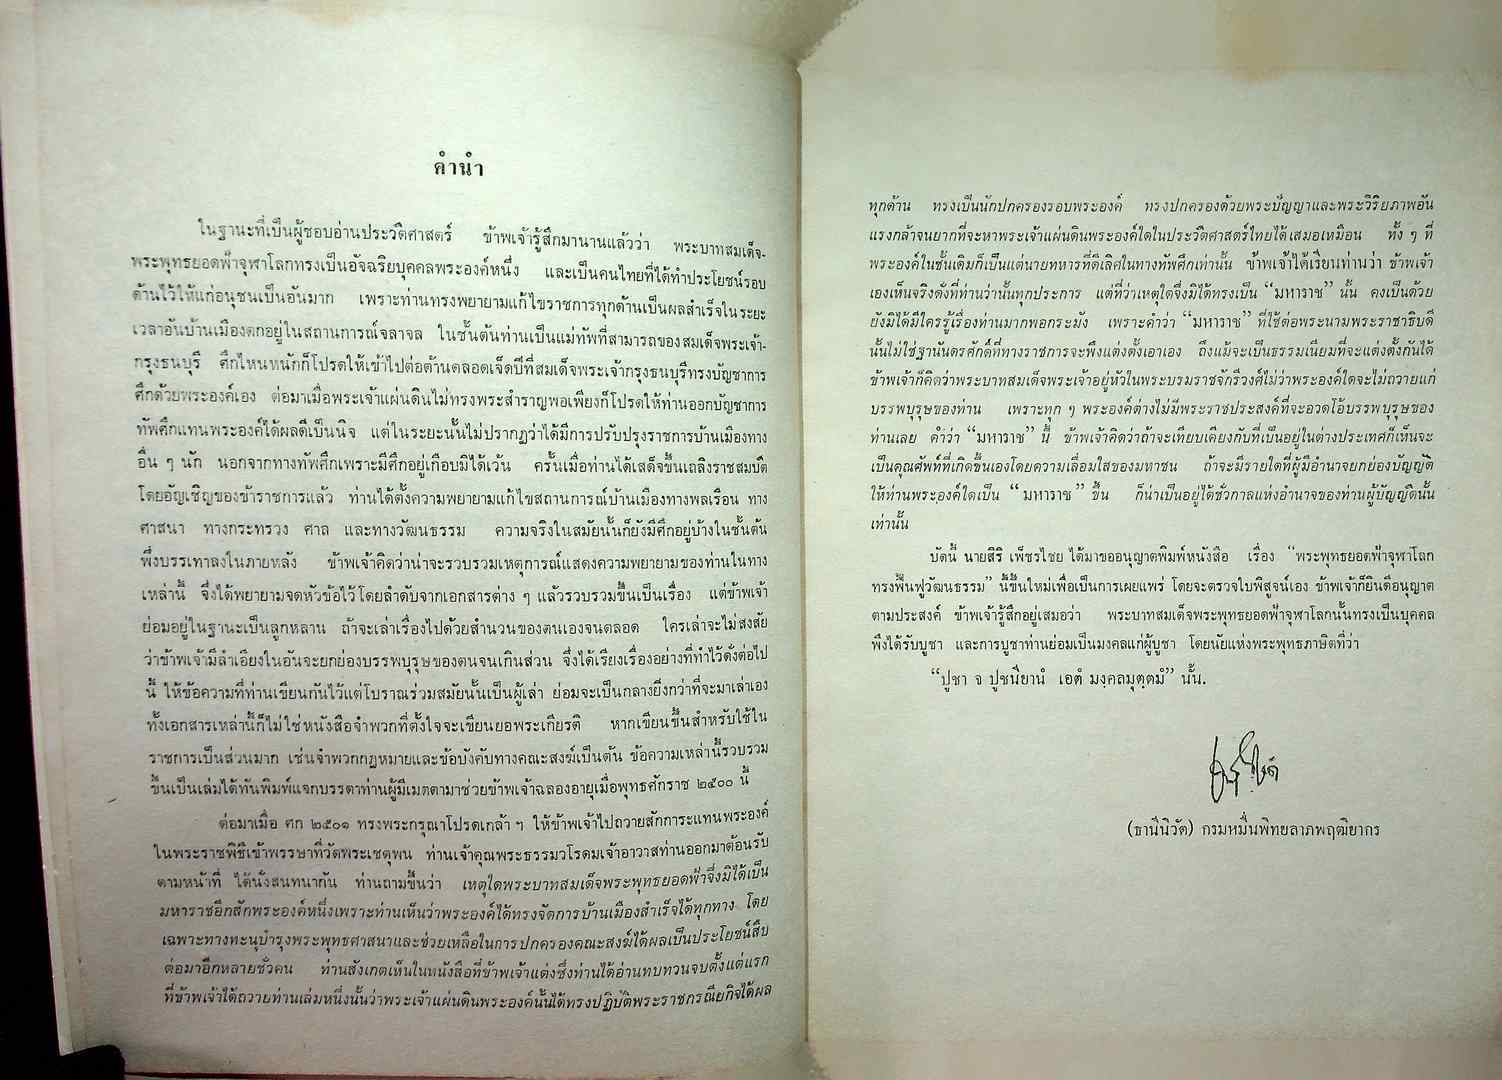 คำนำ
ในฐานะที่เป็นผู้ชอบอ่านประวัติศาสตร์ ข้าพเจ้ารู้สึกมานานแล้วว่า พระบาทสมเด็จ-
พระพุทธยอดฟ้าจุฬาโลกทรงเป็นอัจฉริยบุคคลพระองค์หนึ่ง และเป็นคนไทยที่ได้ทำประโยชน์รอบ
ด้านไว้ให้แก่อนุชนเป็นอันมาก เพราะท่านทรงพยายามแก้ไขราชการทุกด้านเป็นผลสำเร็จในระยะ
เวลาอันบ้านเมืองตกอยู่ในสถานการณ์จลาจล ในชั้นต้นท่านเป็นแม่ทัพที่สามารถของสมเด็จพระเจ้า-
กรุงธนบุรี ศึกไหนหนักก็โปรดให้เข้าไปต่อต้านตลอดเจ็ดปีที่สมเด็จพระเจ้ากรุงธนบุรีทรงบัญชาการ
ศึกด้วยพระองค์เอง ต่อมาเมื่อพระเจ้าแผ่นดินไม่ทรงพระสำราญพอเพียงก็โปรดให้ท่านออกบัญชาการ
ทัพศึกแทนพระองค์ได้ผลดีเป็นนิจ แต่ในระยะนั้นไม่ปรากฏว่าได้มีการปรับปรุงราชการบ้านเมืองทาง
อื่น ๆ นัก นอกจากทางทัพศึกเพราะมีศึกอยู่เกือบมิได้เว้น ครั้นเมื่อท่านได้เสด็จขึ้นเถลิงราชสมบัติ
โดยอัญเชิญของข้าราชการแล้ว ท่านได้ตั้งความพยายามแก้ไขสถานการณ์บ้านเมืองทางพลเรือน ทาง
ศาสนา ทางกระทรวง ศาล และทางวัฒนธรรม ความจริงในสมัยนั้นก็ยังมีศึกอยู่บ้างในชั้นต้น
พึ่งบรรเทาลงในภายหลัง ข้าพเจ้าคิดว่าน่าจะรวบรวมเหตุการณ์แสดงความพยายามของท่านในทาง
เหล่านี้ จึงได้พยายามจดหัวข้อไว้โดยลำดับจากเอกสารต่าง ๆ แล้วรวบรวมขึ้นเป็นเรื่อง แต่ข้าพเจ้า
ย่อมอยู่ในฐานะเป็นลูกหลาน ถ้าจะเล่าเรื่องไปด้วยสำนวนของตนเองจนตลอด ใครเล่าจะไม่สงสัย
ว่าข้าพเจ้ามีลำเอียงในอันจะยกย่องบรรพบุรุษของตนจนเกินส่วน จึงได้เรียงเรื่องอย่างที่ทำไว้ดั่งต่อไป
นี้ ให้ข้อความที่ท่านเขียนกันไว้แต่โบราณร่วมสมัยนั้นเป็นผู้เล่า ย่อมจะเป็นกลางยิ่งกว่าที่จะมาเล่าเอง
ทั้งเอกสารเหล่านี้ก็ไม่ใช่หนังสือจำพวกที่ตั้งใจจะเขียนยอพระเกียรติ หากเขียนขึ้นสำหรับใช้ใน
ราชการเป็นส่วนมาก เช่นจำพวกกฎหมายและข้อบังคับทางคณะสงฆ์เป็นต้น ข้อความเหล่านี้รวบรวม
ขึ้นเป็นเล่มได้ทันพิมพ์แจกบรรดาท่านผู้มีเมตตามาช่วยข้าพเจ้าฉลองอายุเมื่อพุทธศักราช ๒๕๐๐ นี้
ต่อมาเมื่อ ศก ๒๕๐๑ ทรงพระกรุณาโปรดเกล้า ฯ ให้ข้าพเจ้าไปถวายสักการะแทนพระองค์
ในพระราชพิธีเข้าพรรษาที่วัดพระเชตุพน ท่านเจ้าคุณพระธรรมวโรดมเจ้าอาวาสท่านออกมาต้อนรับ
ตามหน้าที่ ได้นั่งสนทนากัน ท่านถามขึ้นว่า เหตุใดพระบาทสมเด็จพระพุทธยอดฟ้าจึงมิได้เป็น
มหาราชอีกสักพระองค์หนึ่งเพราะท่านเห็นว่าพระองค์ได้ทรงจัดการบ้านเมืองสำเร็จได้ทุกทาง โดย
เฉพาะทางทะนุบำรุงพระพุทธศาสนาและช่วยเหลือในการปกครองคณะสงฆ์ได้ผลเป็นประโยชน์สืบ
ต่อมาอีกหลายชั่วคน ท่านสังเกตเห็นในหนังสือที่ข้าพเจ้าแต่งซึ่งท่านได้อ่านทบทวนจบตั้งแต่แรก
ที่ข้าพเจ้าได้ถวายท่านเล่มหนึ่งนั้นว่าพระเจ้าแผ่นดินพระองค์นั้นได้ทรงปฏิบัติพระราชกรณียกิจได้ผล
ทุกด้าน ทรงเป็นนักปกครองรอบพระองค์ ทรงปกครองด้วยพระปัญญาและพระวิริยภาพอัน
แรงกล้าจนยากที่จะหาพระเจ้าแผ่นดินพระองค์ใดในประวัติศาสตร์ไทยได้เสมอเหมือน ทั้ง ๆ ที่
พระองค์ในชั้นเดิมก็เป็นแต่นายทหารที่ดีเลิศในทางทัพศึกเท่านั้น ข้าพเจ้าได้เรียนท่านว่า ข้าพเจ้า
เองเห็นจริงดั่งที่ท่านว่านั้นทุกประการ แต่ที่ว่าเหตุใดจึงมิได้ทรงเป็น “มหาราช” นั้น คงเป็นด้วย
ยังมิได้มีใครรู้เรื่องท่านมากพอกระมัง เพราะคำว่า “มหาราช” ที่ใช้ต่อพระนามพระราชาธิบดี
นั้นไม่ใช่ฐานันดรศักดิ์ที่ทางราชการจะพึงแต่งตั้งเอาเอง ถึงแม้จะเป็นธรรมเนียมที่จะแต่งตั้งกันได้
ข้าพเจ้าก็คิดว่าพระบาทสมเด็จพระเจ้าอยู่หัวในพระบรมราชจักรีวงศ์ไม่ว่าพระองค์ใดจะไม่ถวายแก่
บรรพบุรุษของท่าน เพราะทุก ๆ พระองค์ต่างไม่มีพระราชประสงค์ที่จะอวดโอ้บรรพบุรุษของ
ท่านเลย คำว่า “มหาราช” นี้ ข้าพเจ้าคิดว่าถ้าจะเทียบเคียงกับที่เป็นอยู่ในต่างประเทศก็เห็นจะ
เป็นคุณศัพท์ที่เกิดขึ้นเองโดยความเลื่อมใสของมหาชน ถ้าจะมีรายใดที่ผู้มีอำนาจยกย่องบัญญัติ
ให้ท่านพระองค์ใดเป็น “มหาราช” ขึ้น ก็น่าเป็นอยู่ได้ชั่วกาลแห่งอำนาจของท่านผู้บัญญัตินั้น
เท่านั้น
บัดนี้ นายสิริ เพ็ชรไชย ได้มาขออนุญาตพิมพ์หนังสือ เรื่อง “พระพุทธยอดฟ้าจุฬาโลก
ทรงฟื้นฟูวัฒนธรรม” นี้ขึ้นใหม่เพื่อเป็นการเผยแพร่ โดยจะตรวจใบพิสูจน์เอง ข้าพเจ้าก็ยินดีอนุญาต
ตามประสงค์ ข้าพเจ้ารู้สึกอยู่เสมอว่า พระบาทสมเด็จพระพุทธยอดฟ้าจุฬาโลกนั้นทรงเป็นบุคคล
พึงได้รับบูชา และการบูชาท่านย่อมเป็นมงคลแก่ผู้บูชา โดยนัยแห่งพระพุทธภาษิตที่ว่า
“ปูชา จ ปูชนียานํ เอตํ มงฺคลมุตฺตมํ” นั้น.
(ธานีนิวัต) กรมหมื่นพิทยลาภพฤฒิยากร